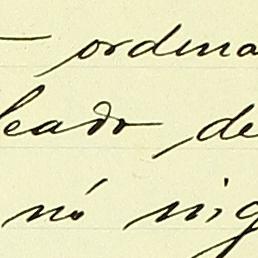 — ordena
leado, de
nó nig